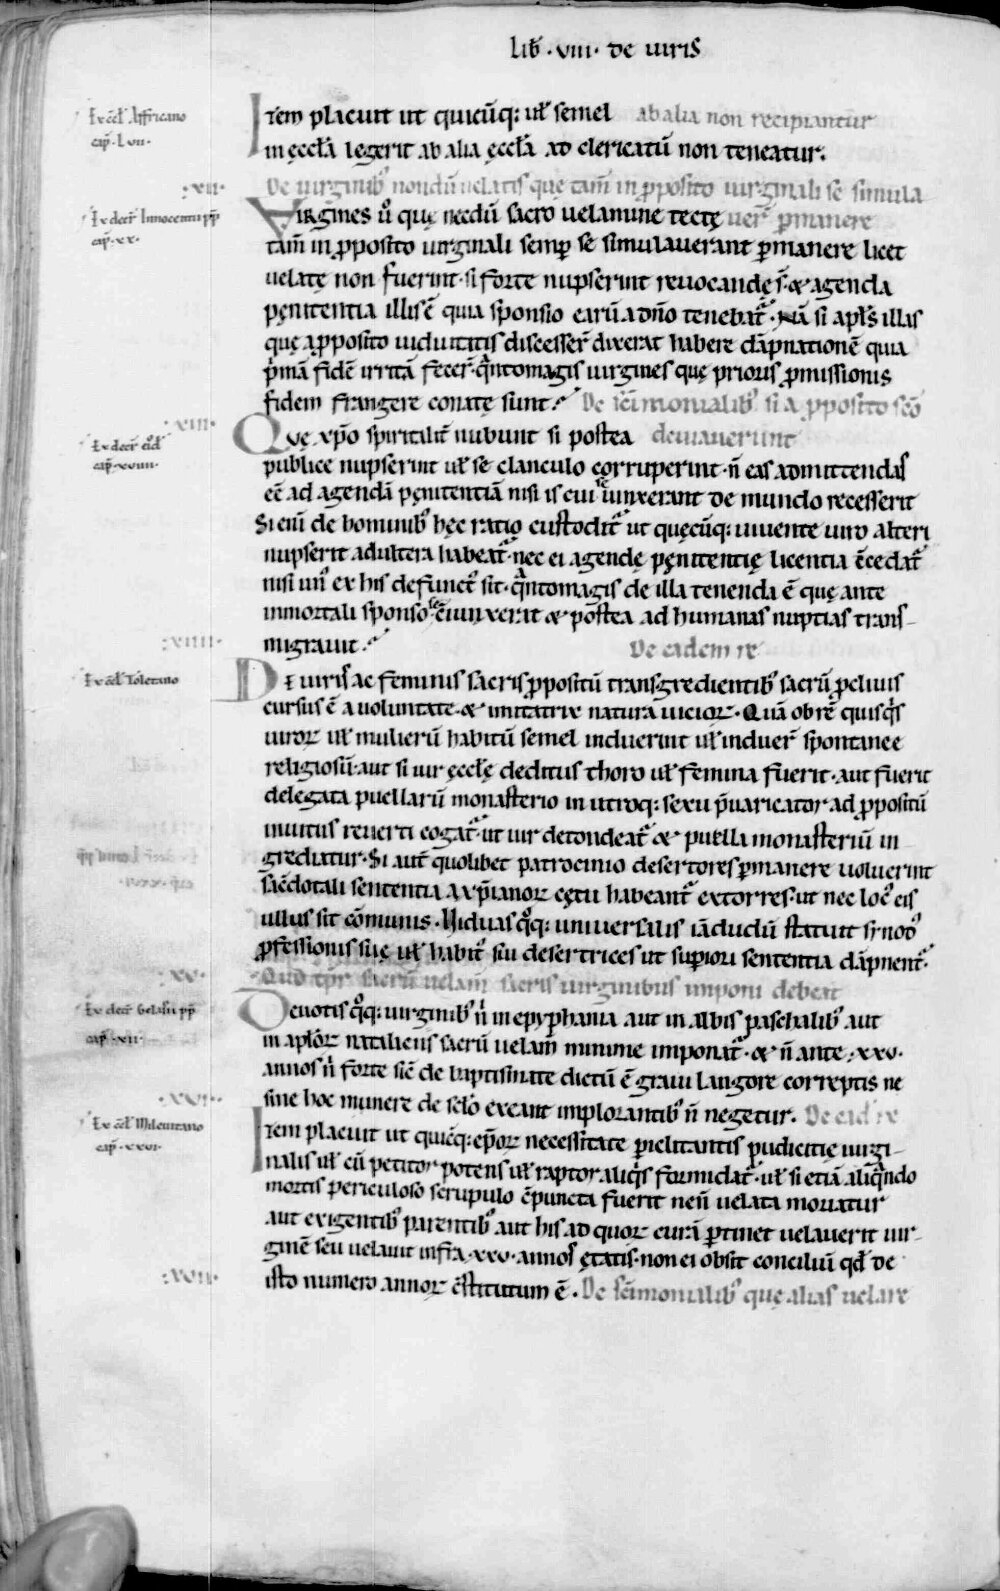 Lib̃ ·viii· de uiris
Ex ccł Affricano
cap̃ · Lvii·
Item placuit ut quicũq; uł semel ab alia non recipiantur
in ęccła legerit ab alia ęccła ad clericatũ non teneatur.
·xii·
De uirginib; nondũ uelatis quę tam̃ in p̱posito uirginali se simula
Ex decr̃ Innocentii pp̃
cap̃ ·xx·
Virgines ů quę necdũ sacro uelamine tectę uer̃ p̱manere
tam̃ in p̱posito uirginali semp̱ se simulauerant p̱manere licet
uelatę non fuerint · si forte nupserint reuocandę s̃ · & agenda
pęnitentia illis ẽ quia sponsio earũ a dño tenebat̃ · Nã si apl̃s illas
quę a p̱posito uiduitatis discesser̃ dixerat habere dãpnationẽ quia
p̃mã fidẽ irritã fecer̃ · q̃ntomagis uirgines quę prioris p̱missionis
fidem frangere conatę sunt · De sc̃imonialib; si a p̱posito sc̃o
·xiii·
Ex decr̃ eiůd̃
cap̃ ·xviiii·
Quę xp̃o spiritalit̃ nubunt si postea deuiauerunt
publice nupserint uł se clanculo corruperint · ñ eas admittendas
eẽ ad agendã pęnitentiã nisi is cui se iunxerant de mundo recesserit
Si eiũ de hominib; hęc ratio custodit̃ ut quęcũq; uiuente uiro alteri
nupserit adultera habeat̃ · nec ei agendę pęnitentię licentia c̃cedat̃
nisi un; ex his defunct; sit · q̃ntomagis de illa tenenda ẽ quę ante
inmortali sponso se c̃iunxerit & postea ad humanas nuptias trans-
migrauit · De eadem re
·xiiii·
Ex ccł Toletano
De uiris ac feminis sacris p̱positũ transgredientib; sacrũ p̱cliuis
cursus ẽ a uoluntate · & imitatrix natura uicioꝝ · Quã ob rẽ quisq̃s
uiroꝝ uł mulierũ habitũ semel induerint uł induer̃ spontanee
religiosũ · aut si uir ęccłę deditus choro uł femina fuerit · aut fuerit
delegata puellarũ monasterio in utroq; sexu p̃uaricator ad p̱positũ
inuitus reuerti cogat̃ · ut uir detondeat̃ & puella monasteriũ in-
grediatur · Si aut̃ quolibet patrocinio desertores p̱manere uoluerint
sac̃dotali sententia a xp̃ianoꝝ cętu habeant̃ extorres · ut nec loc; eis
ullus sit cõmunis · Uiduas q̊q; uniuersalis iãdudũ statuit synod;
p̱fessionis suę uł habit; sui desertrices ut sup̱iori sententia dãpnent̃ ·
·xv·
Quo tp̃r sacrũ uelam̃ sacris uirginibus imponi debeat
Ex decr̃ Gelasii pp̃
cap̃ ·xii·
Deuotis q̊q; uirginib; ñ in epyphania aut in albis paschalib; aut
in apl̃oꝝ nataliciis sacrũ uelam̃ minime imponat̃ · & ñ ante ·xxv·
annos ñ forte sic̃ de baptismate dictũ ẽ graui langore correptis ne
sine hoc munere de sc̃lo exeant implorantib; ñ negetur. De ead̃ re
·xvi·
Ex ccł Mileuitano
cap̃ ·xxvi·
Item placuit ut quic̃q; ep̃oꝝ necessitate p̱iclitantis pudicitię uirgi-
nalis uł cũ petitor potens uł raptor aliq̃s formidat̃ · uł si etiã aliq̃ndo
mortis periculoso scrupulo c̃puncta fuerit nesñ uelata moriatur
aut exigentib; parentib; aut his ad quoꝝ curã p̱tinet uelauerit uir-
ginẽ seu uelauit infra ·xxv· annos ętatis · non ei obsit conciliũ qđ de
isto numero annoꝝ c̃stitutum ẽ · De sc̃imonialib; quę alias uelare
·xvii·